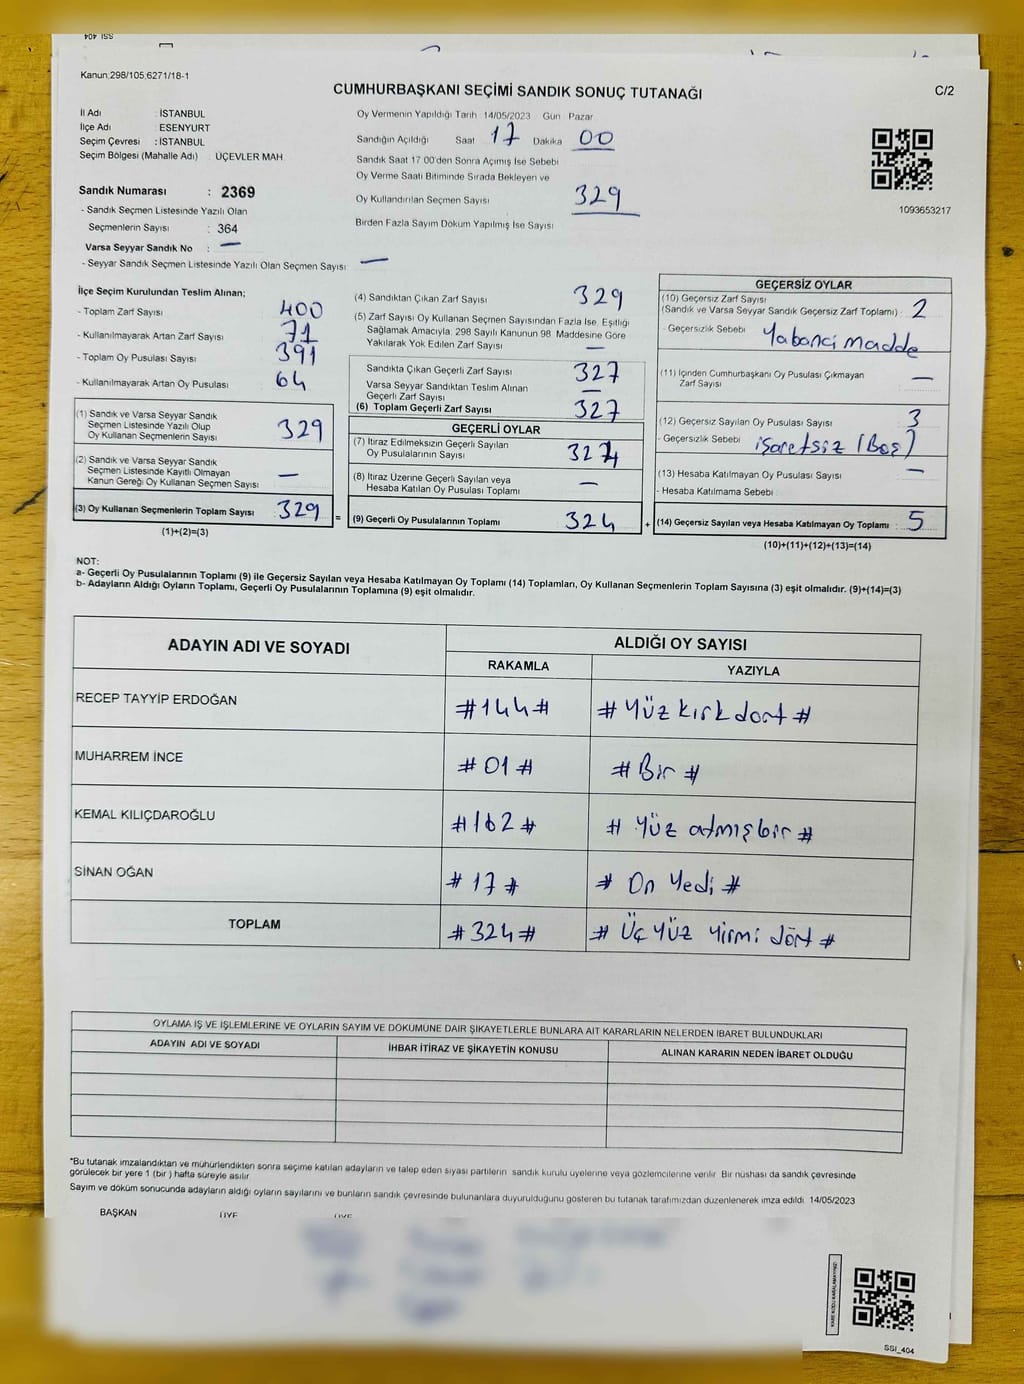 Kanun;298/105;6271/18-1
CUMHURBAŞKANI SEÇİMİ SANDIK SONUÇ TUTANAĞI
C/2
İl Adı : İSTANBUL
İlçe Adı : ESENYURT
Seçim Çevresi : İSTANBUL
Seçim Bölgesi (Mahalle Adı) : ÜÇEVLER MAH
Sandık Numarası : 2369
- Sandık Seçmen Listesinde Yazılı Olan
Seçmenlerin Sayısı : 364
Varsa Seyyar Sandık No : —
- Seyyar Sandık Seçmen Listesinde Yazılı Olan Seçmen Sayısı —
Oy Vermenin Yapıldığı Tarih 14/05/2023 Gün Pazar
Sandığın Açıldığı Saat 17 Dakika 00
Sandık Saat 17 00'den Sonra Açımış İse Sebebi
Oy Verme Saati Bitiminde Sırada Bekleyen ve
Oy Kullandırılan Seçmen Sayısı 329
Birden Fazla Sayım Döküm Yapılmış İse Sayısı
1093653217
İlçe Seçim Kurulundan Teslim Alınan;
- Toplam Zarf Sayısı 400
- Kullanılmayarak Artan Zarf Sayısı 71
- Toplam Oy Pusulası Sayısı 391
- Kullanılmayarak Artan Oy Pusulası 64
(1) Sandık ve Varsa Seyyar Sandık
Seçmen Listesinde Yazılı Olup
Oy Kullanan Seçmenlerin Sayısı 329
(2) Sandık ve Varsa Seyyar Sandık
Seçmen Listesinde Kayıtlı Olmayan
Kanun Gereği Oy Kullanan Seçmen Sayısı —
(3) Oy Kullanan Seçmenlerin Toplam Sayısı 329
(1)+(2)=(3)
(4) Sandıktan Çıkan Zarf Sayısı 329
(5) Zarf Sayısı Oy Kullanan Seçmen Sayısından Fazla İse, Eşitliği
Sağlamak Amacıyla, 298 Sayılı Kanunun 98. Maddesine Göre
Yakılarak Yok Edilen Zarf Sayısı —
Sandıkta Çıkan Geçerli Zarf Sayısı 327
Varsa Seyyar Sandıktan Teslim Alınan
Geçerli Zarf Sayısı —
(6) Toplam Geçerli Zarf Sayısı 327
GEÇERLİ OYLAR
(7) İtiraz Edilmeksizin Geçerli Sayılan
Oy Pusulalarının Sayısı 324
(8) İtiraz Üzerine Geçerli Sayılan veya
Hesaba Katılan Oy Pusulası Toplamı —
= (9) Geçerli Oy Pusulalarının Toplamı 324
GEÇERSİZ OYLAR
(10) Geçersiz Zarf Sayısı
(Sandık ve Varsa Seyyar Sandık Geçersiz Zarf Toplamı) 2
- Geçersizlik Sebebi Yabancı madde
(11) İçinden Cumhurbaşkanı Oy Pusulası Çıkmayan
Zarf Sayısı —
(12) Geçersiz Sayılan Oy Pusulası Sayısı 3
- Geçersizlik Sebebi işaretsiz (Boş)
(13) Hesaba Katılmayan Oy Pusulası Sayısı —
- Hesaba Katılmama Sebebi
+ (14) Geçersiz Sayılan veya Hesaba Katılmayan Oy Toplamı : 5
(10)+(11)+(12)+(13)=(14)
NOT:
a- Geçerli Oy Pusulalarının Toplamı (9) ile Geçersiz Sayılan veya Hesaba Katılmayan Oy Toplamı (14) Toplamları, Oy Kullanan Seçmenlerin Toplam Sayısına (3) eşit olmalıdır. (9)+(14)=(3)
b- Adayların Aldığı Oyların Toplamı, Geçerli Oy Pusulalarının Toplamına (9) eşit olmalıdır.
ADAYIN ADI VE SOYADI
ALDIĞI OY SAYISI
RAKAMLA YAZIYLA
RECEP TAYYİP ERDOĞAN #144# # Yüz kırk dört #
MUHARREM İNCE #01# # Bir #
KEMAL KILIÇDAROĞLU #162# # Yüz atmışbir #
SİNAN OĞAN #17# # On Yedi #
TOPLAM #324# # Üç Yüz Yirmi dört #
OYLAMA İŞ VE İŞLEMLERİNE VE OYLARIN SAYIM VE DÖKÜMÜNE DAİR ŞİKAYETLERLE BUNLARA AİT KARARLARIN NELERDEN İBARET BULUNDUKLARI
ADAYIN ADI VE SOYADI İHBAR İTİRAZ VE ŞİKAYETİN KONUSU ALINAN KARARIN NEDEN İBARET OLDUĞU
*Bu tutanak imzalandıktan ve mühürlendikten sonra seçime katılan adayların ve talep eden siyasi partilerin sandık kurulu üyelerine veya gözlemcilerine verilir. Bir nüshası da sandık çevresinde
görülecek bir yere 1 (bir) hafta süreyle asılır
Sayım ve döküm sonucunda adayların aldığı oyların sayılarını ve bunların sandık çevresinde bulunanlara duyurulduğunu gösteren bu tutanak tarafımızdan düzenlenerek imza edildi 14/05/2023
BAŞKAN ÜYE ÜYE
SSİ_404